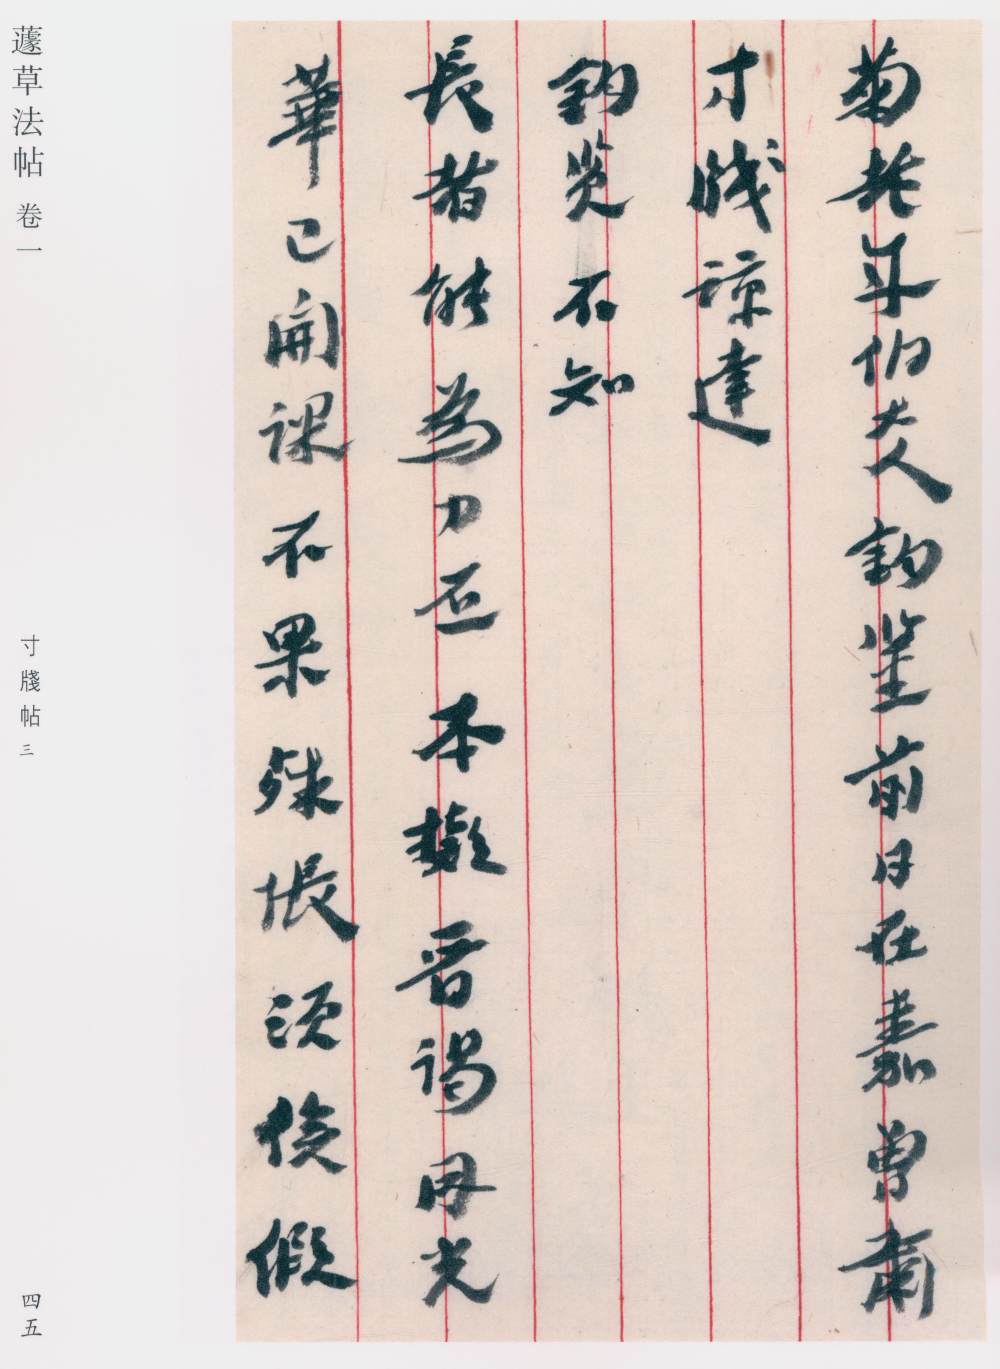 菊老年伯大人鈞鑒前日在嘉曾肅
寸牋諒達
鈞覽不知
長者能為力否本擬晉謁因光
華已開課不果殊悵須俟假
蘧草法帖 卷一
寸牋帖 三
四五